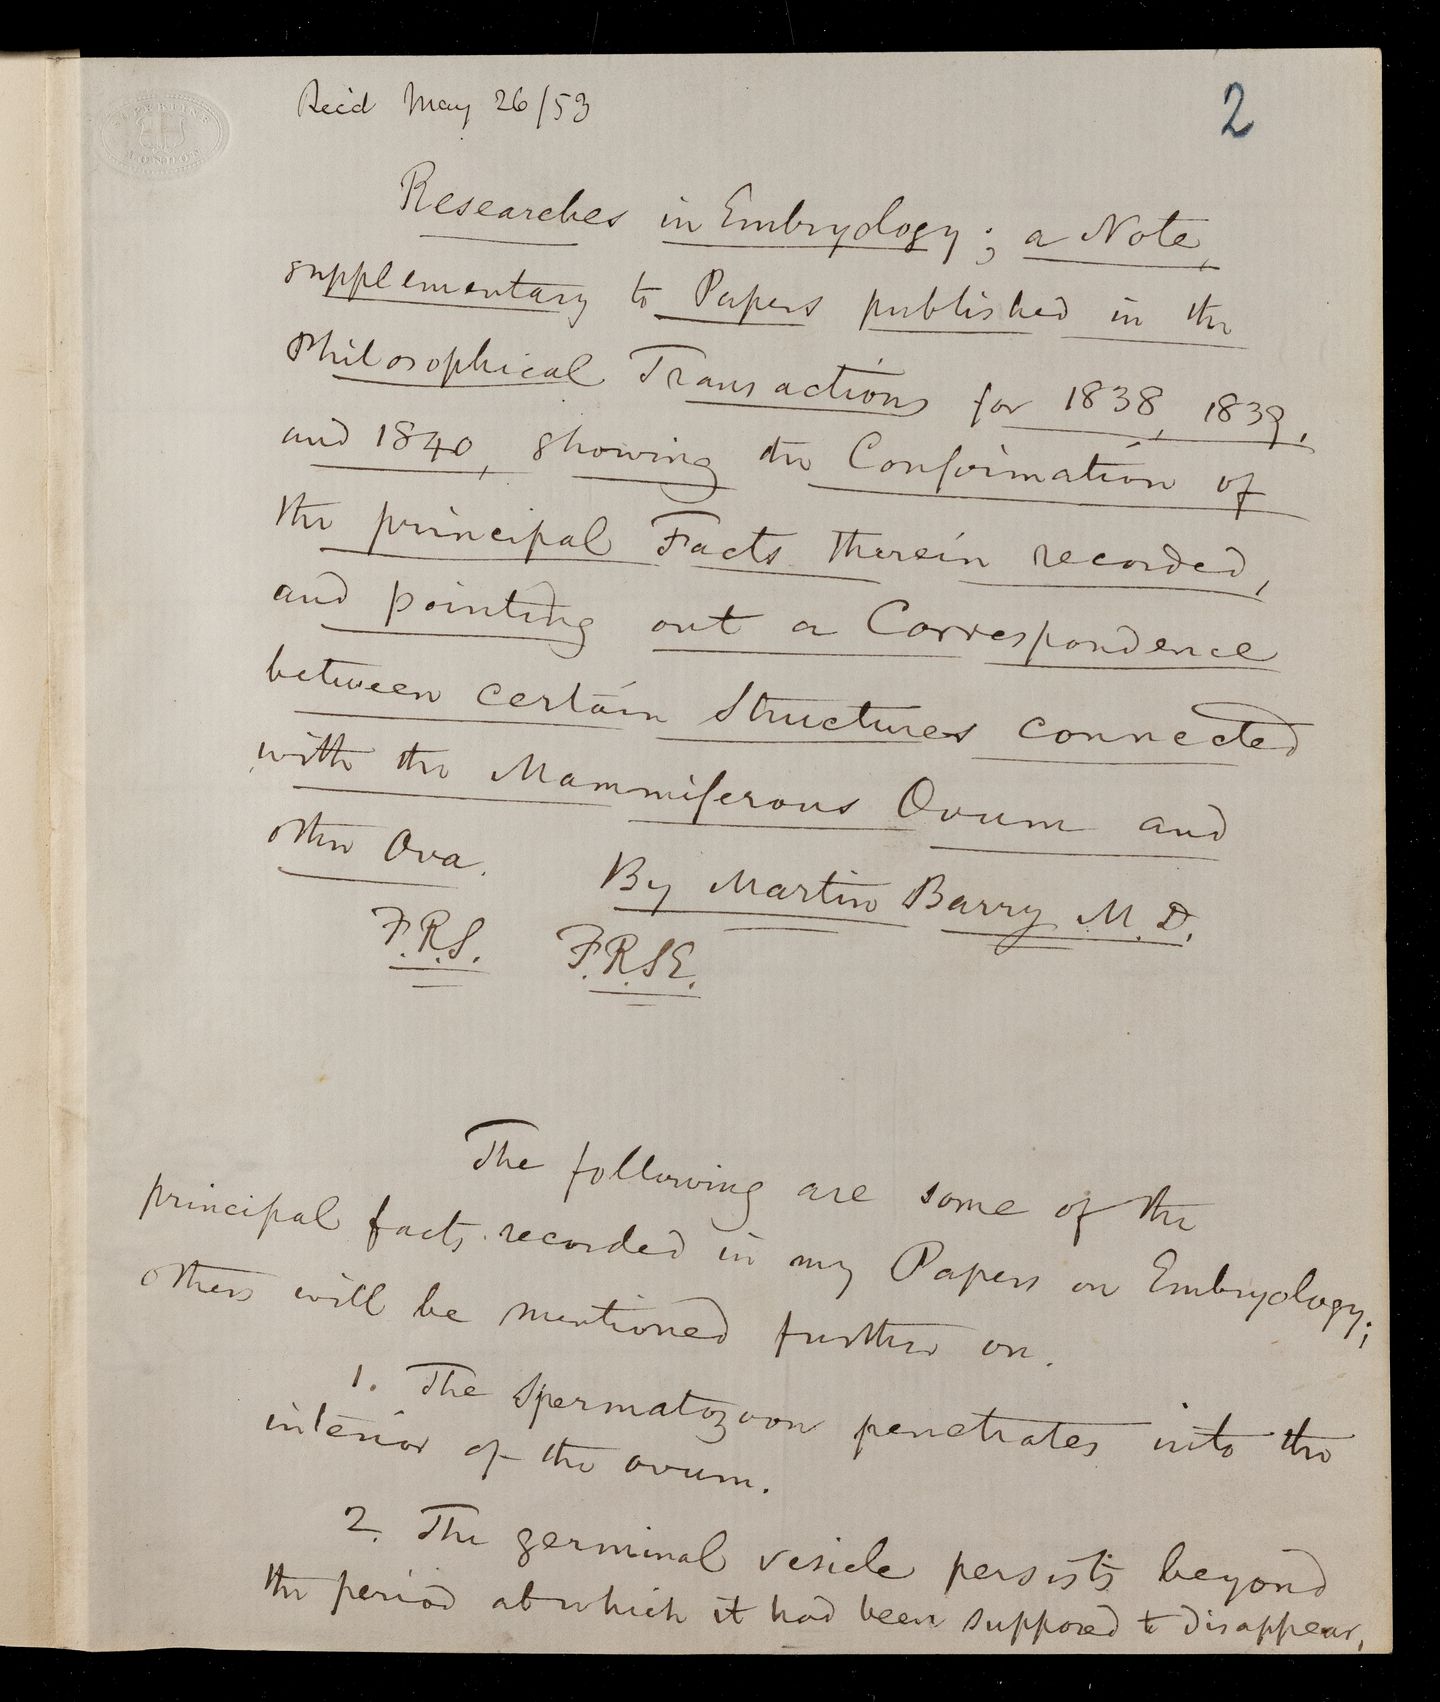 Rec'd May 26/53
2
Researches in Embryology; a Note,
supplementary to Papers published in the
Philosophical Transactions for 1838, 1839,
and 1840, showing the Confirmation of
the principal Facts therein recorded,
and pointing out a Correspondence
between certain Structures connected
with the Mammiferous Ovum and
other Ova.
By Martin Barry M.D.
F.R.S. F.R.S.E.
The following are some of the
principal facts recorded in my Papers on Embryology;
others will be mentioned further on.
1. The Spermatozoon penetrates into the
interior of the ovum.
2. The germinal vesicle persists beyond
the period at which it had been supposed to disappear,
LONDON